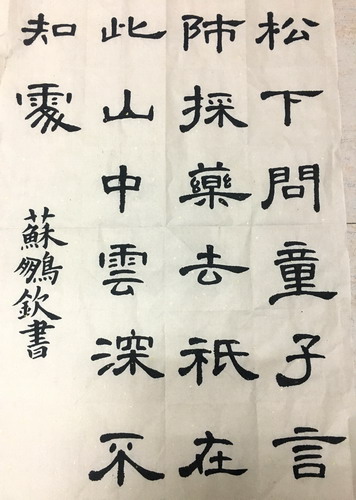 松下問童子言
師採藥去祇在
此山中雲深不
知處
蘇鵬欽書